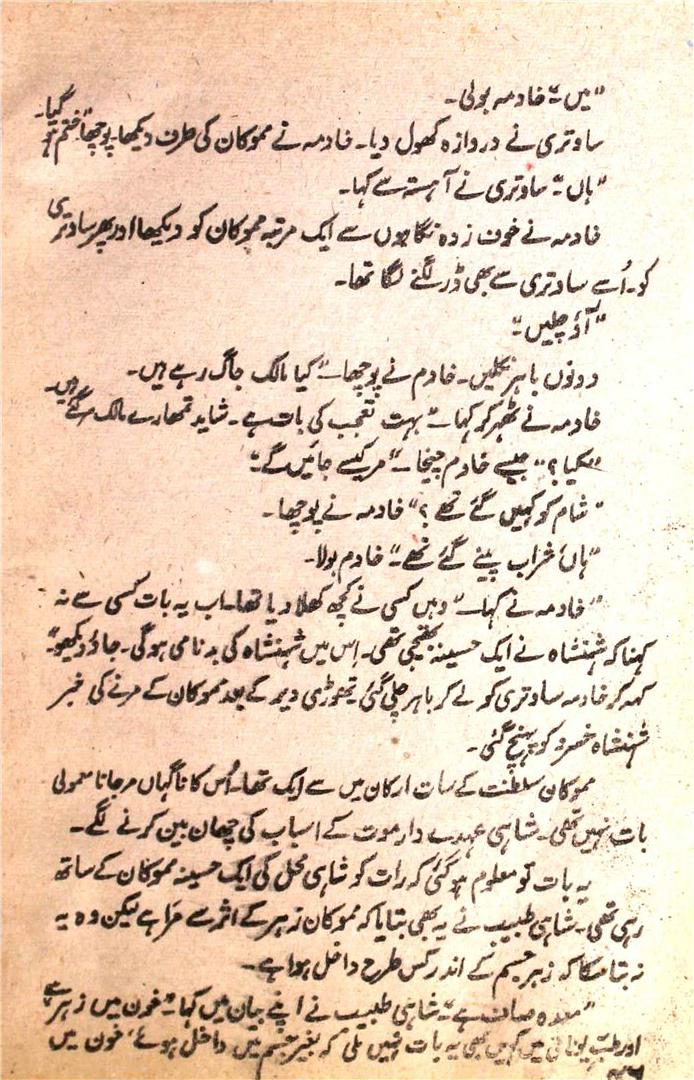 "میں" خادمہ بولی۔
ساوتری نے دروازہ کھول دیا۔ خادمہ نے مموکان کی طرف دیکھا۔ پوچھا "ختم ہو گیا۔
"ہاں" ساوتری نے آہستہ سے کہا۔
خادمہ نے خوف زدہ نگاہوں سے ایک مرتبہ مموکان کو دیکھا اور پھر ساوتری
کو۔ اُسے ساوتری سے بھی ڈر لگنے لگا تھا۔
"آؤ چلیں"
دونوں باہر نکلیں۔ خادم نے پوچھا۔ "کیا مالک جاگ رہے ہیں۔
خادمہ نے ٹھہر کر کہا۔ "بہت تعجب کی بات ہے۔ شاید تمھارے مالک مر گئے ہیں۔
"کیا؟" جیسے خادم چیخا۔ "مر کیسے جائیں گے"
"شام کو کہیں گئے تھے؟" خادمہ نے پوچھا۔
"ہاں شراب پینے گئے تھے" خادم بولا۔
"خادمہ نے کہا۔ "وہیں کسی نے کچھ کھلا دیا تھا۔ اب یہ بات کسی سے نہ
کہنا کہ شہنشاہ نے ایک حسینہ بھیجی تھی۔ اِس میں شہنشاہ کی بدنامی ہوگی۔ جاؤ دیکھو"
کہہ کر خادمہ ساوتری کو لے کر باہر چلی گئی۔ تھوڑی دیر کے بعد مموکان کے مرنے کی خبر
شہنشاہ خسرو کو پہنچ گئی۔
مموکان سلطنت کے سات ارکان میں سے ایک تھا۔ اُس کا ناگہاں مر جانا معمولی
بات نہیں تھی۔ شاہی عہدے دار موت کے اسباب کی چھان بین کرنے لگے۔
یہ بات تو معلوم ہو گئی کہ رات کو شاہی محل کی ایک حسینہ مموکان کے ساتھ
رہی تھی۔ شاہی طبیب نے یہ بھی بتایا کہ مموکان زہر کے اثر سے مرا ہے لیکن وہ یہ
نہ بتا سکا کہ زہر جسم کے اندر کس طرح داخل ہوا ہے۔
"معدہ صاف ہے" شاہی طبیب نے اپنے بیان میں کہا۔ "خون میں زہر ہے
اور طبِ یونانی میں کہیں بھی یہ بات نہیں ملی کہ بغیر جسم میں داخل ہوئے، خون میں